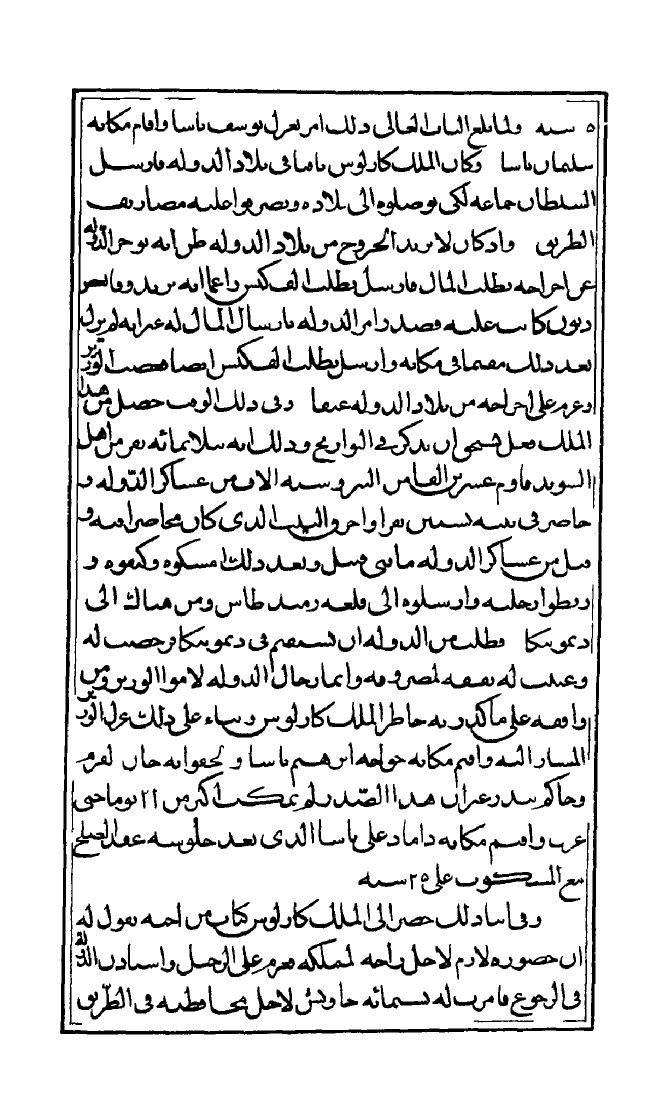 ٥ سنه ولما بلغ الباب العالى ذلك امر بعزل يوسف باشا واقام مكانه
سليمان باشا وكان الملك كارلوس باقيا فى بلاد الدوله فارسل
السلطان جماعه لكى يوصلوه الى بلاده ويصرفوا عليه مصاريف
الطريق واذ كان لا يريد الخروج من بلاد الدوله طرا به يوخر الدوله
عن اخراجه بطلب المال فارسل يطلب الف كيس زاعما انه يريد وفا بعض
ديون كانت عليه فصدر امر الدوله بارسال المال له غير انه لم يزل
بعد ذلك مقيما فى مكانه وارسل يطلب الف كيس ايضا فغضب الوزير
وعزم على اخراجه من بلاد الدوله عنفا وفى ذلك الوقت حصل من هذا
الملك فعل يستحق ان يذكر فى التواريخ وذلك انه بثلاثمائه نفر من اهل
السويد قاوم عشرين الفا من التتر وسته الاف من عساكر الدوله و
حاصر فى بيته بستين نفرا واحرق البيت الذى كان محاصرا فيه و
قتل من عساكر الدوله مايتى قتيل وبعد ذلك امسكوه وكتفوه و
ربطوا رجليه وارسلوه الى قلعه دميرطاش ومن هناك الى
ديموتيكا فطلب من الدوله ان يستقيم فى ديموتيكا فرخصت له
وعينت له نفقه لمصروفه وانما رجال الدوله لاموا الوزير ومن
وافقه على ما كدر به خاطر الملك كارلوس وبناء على ذلك عزل الوزير
المشار اليه واقيم مكانه خواجه ابرهيم باشا والحقوا به خان القرم
وحاكم بندر غير ان هذا الصدر لم يمكث اكثر من ٢١ يوما حتى
عزل واقيم مكانه داماد على باشا الذى بعد جلوسه عقد الصلح
مع المسكوب على ٢٥ سنه
وفى اثنا ذلك حضر الى الملك كارلوس كتاب من اخته تقول له
ان حضوره لازم لاجل راحه مملكته فعزم على الرحيل واستاذن الدوله
فى الرجوع فامرت له بستمائه جاويش لاجل محافظته فى الطريق